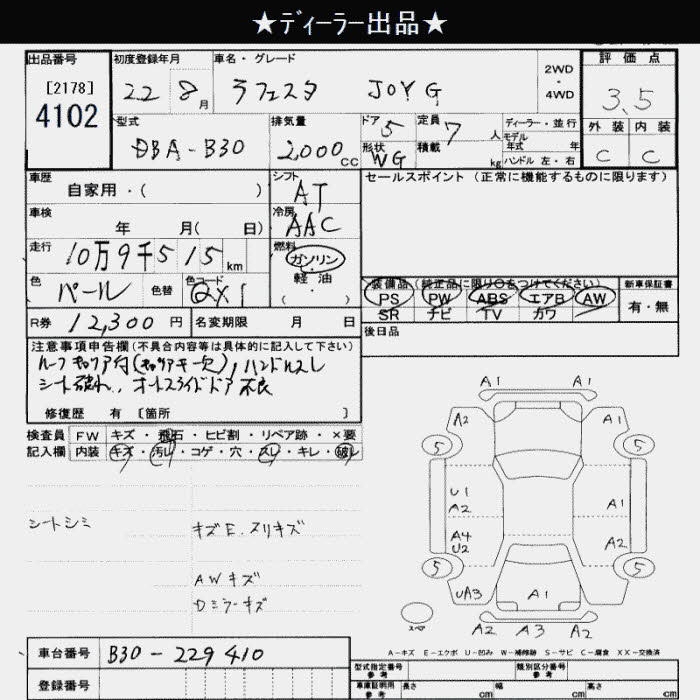 ★ディーラー出品★
出品番号
[2178]
4102
初度登録年月
22 8月
車名・グレード
ラフェスタ JOY G
2WD
・
4WD
評価点
3.5
外装 内装
C C
型式
DBA-B30
排気量
2,000cc
ドア 5
形状 WG
定員 7人
積載 kg
ディーラー・並行
モデル
年式 年
ハンドル 左・右
車歴
自家用・( )
シフト
AT
セールスポイント (正常に機能するものに限ります)
車検
年 月( 日)
冷房
AAC
走行
10万9千515km
燃料
ガソリン
・
軽油
( )
色
パール
色替
色コード
QX1
装備品 (純正品に限り○をつけてください)
PS PW ABS エアB AW
SR ナビ TV カワ
新車保証書
有・無
R券 12,300円
名変期限 月 日
後日品
注意事項申告欄(不具合内容等は具体的に記入して下さい)
ルーフキャリア付(キャリアキー欠), ハンドルスレ
シート破れ、オートスライドドア不良
修復歴 有 [箇所 ]
検査員 FW キズ・飛石・ヒビ割・リペア跡・×要
記入欄 内装 キズ・汚レ・コゲ・穴・スレ・キレ・破レ
シートシミ
キズE.スリキズ
AWキズ
Dミラーキズ
A1 A1
A2 A1
5 5
U1
A2
A1
A4
U2
A2
5 5
UA3 A1
スペア
A2 A3 A2
A-キズ E-エクボ U-凹み W-補修跡 S-サビ C-腐食 XX-交換済
車台番号 B30-229410
登録番号
型式指定番号
参考
類別区分番号
参考
車庫証明用
参考
長さ cm 幅 cm 高さ cm